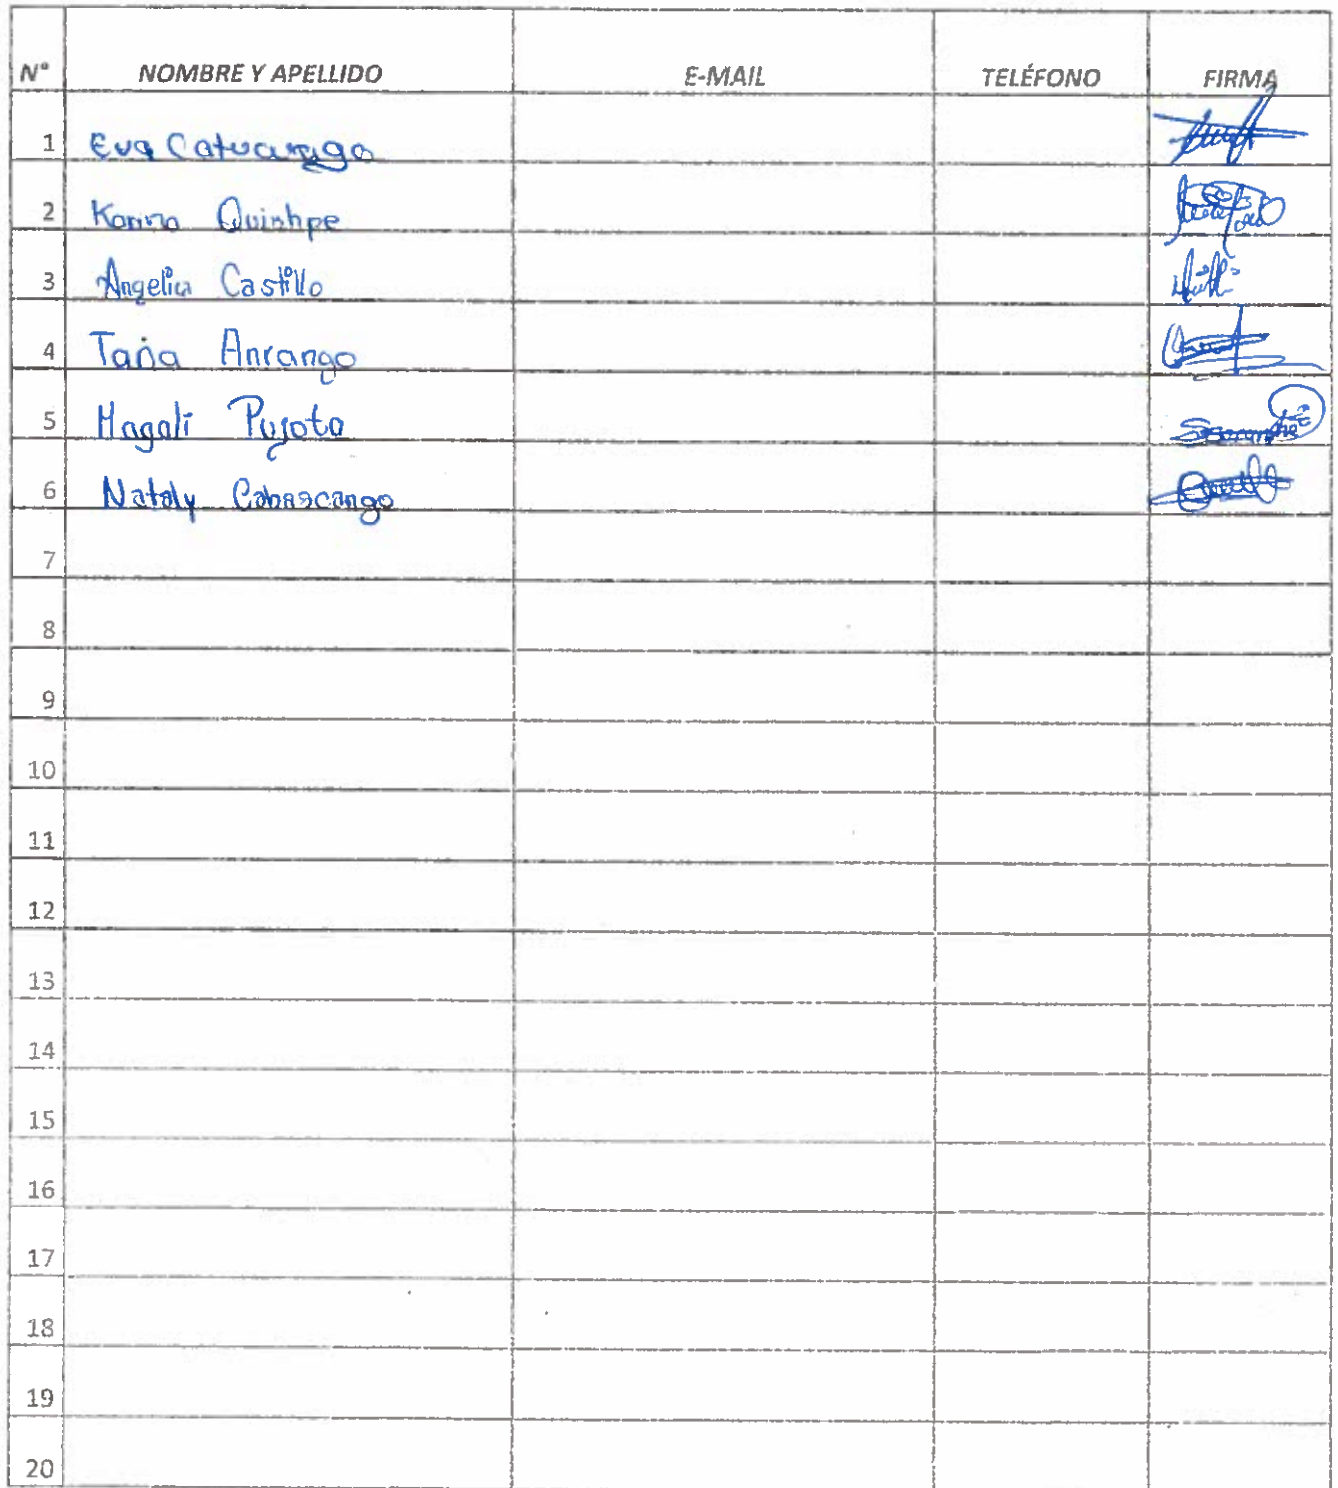 N° NOMBRE Y APELLIDO E-MAIL TELÉFONO FIRMA
1 Eva Catucango
2 Karina Quishpe
3 Angelica Castillo
4 Tania Anrango
5 Magali Pujota
6 Nataly Cabascango
7
8
9
10
11
12
13
14
15
16
17
18
19
20